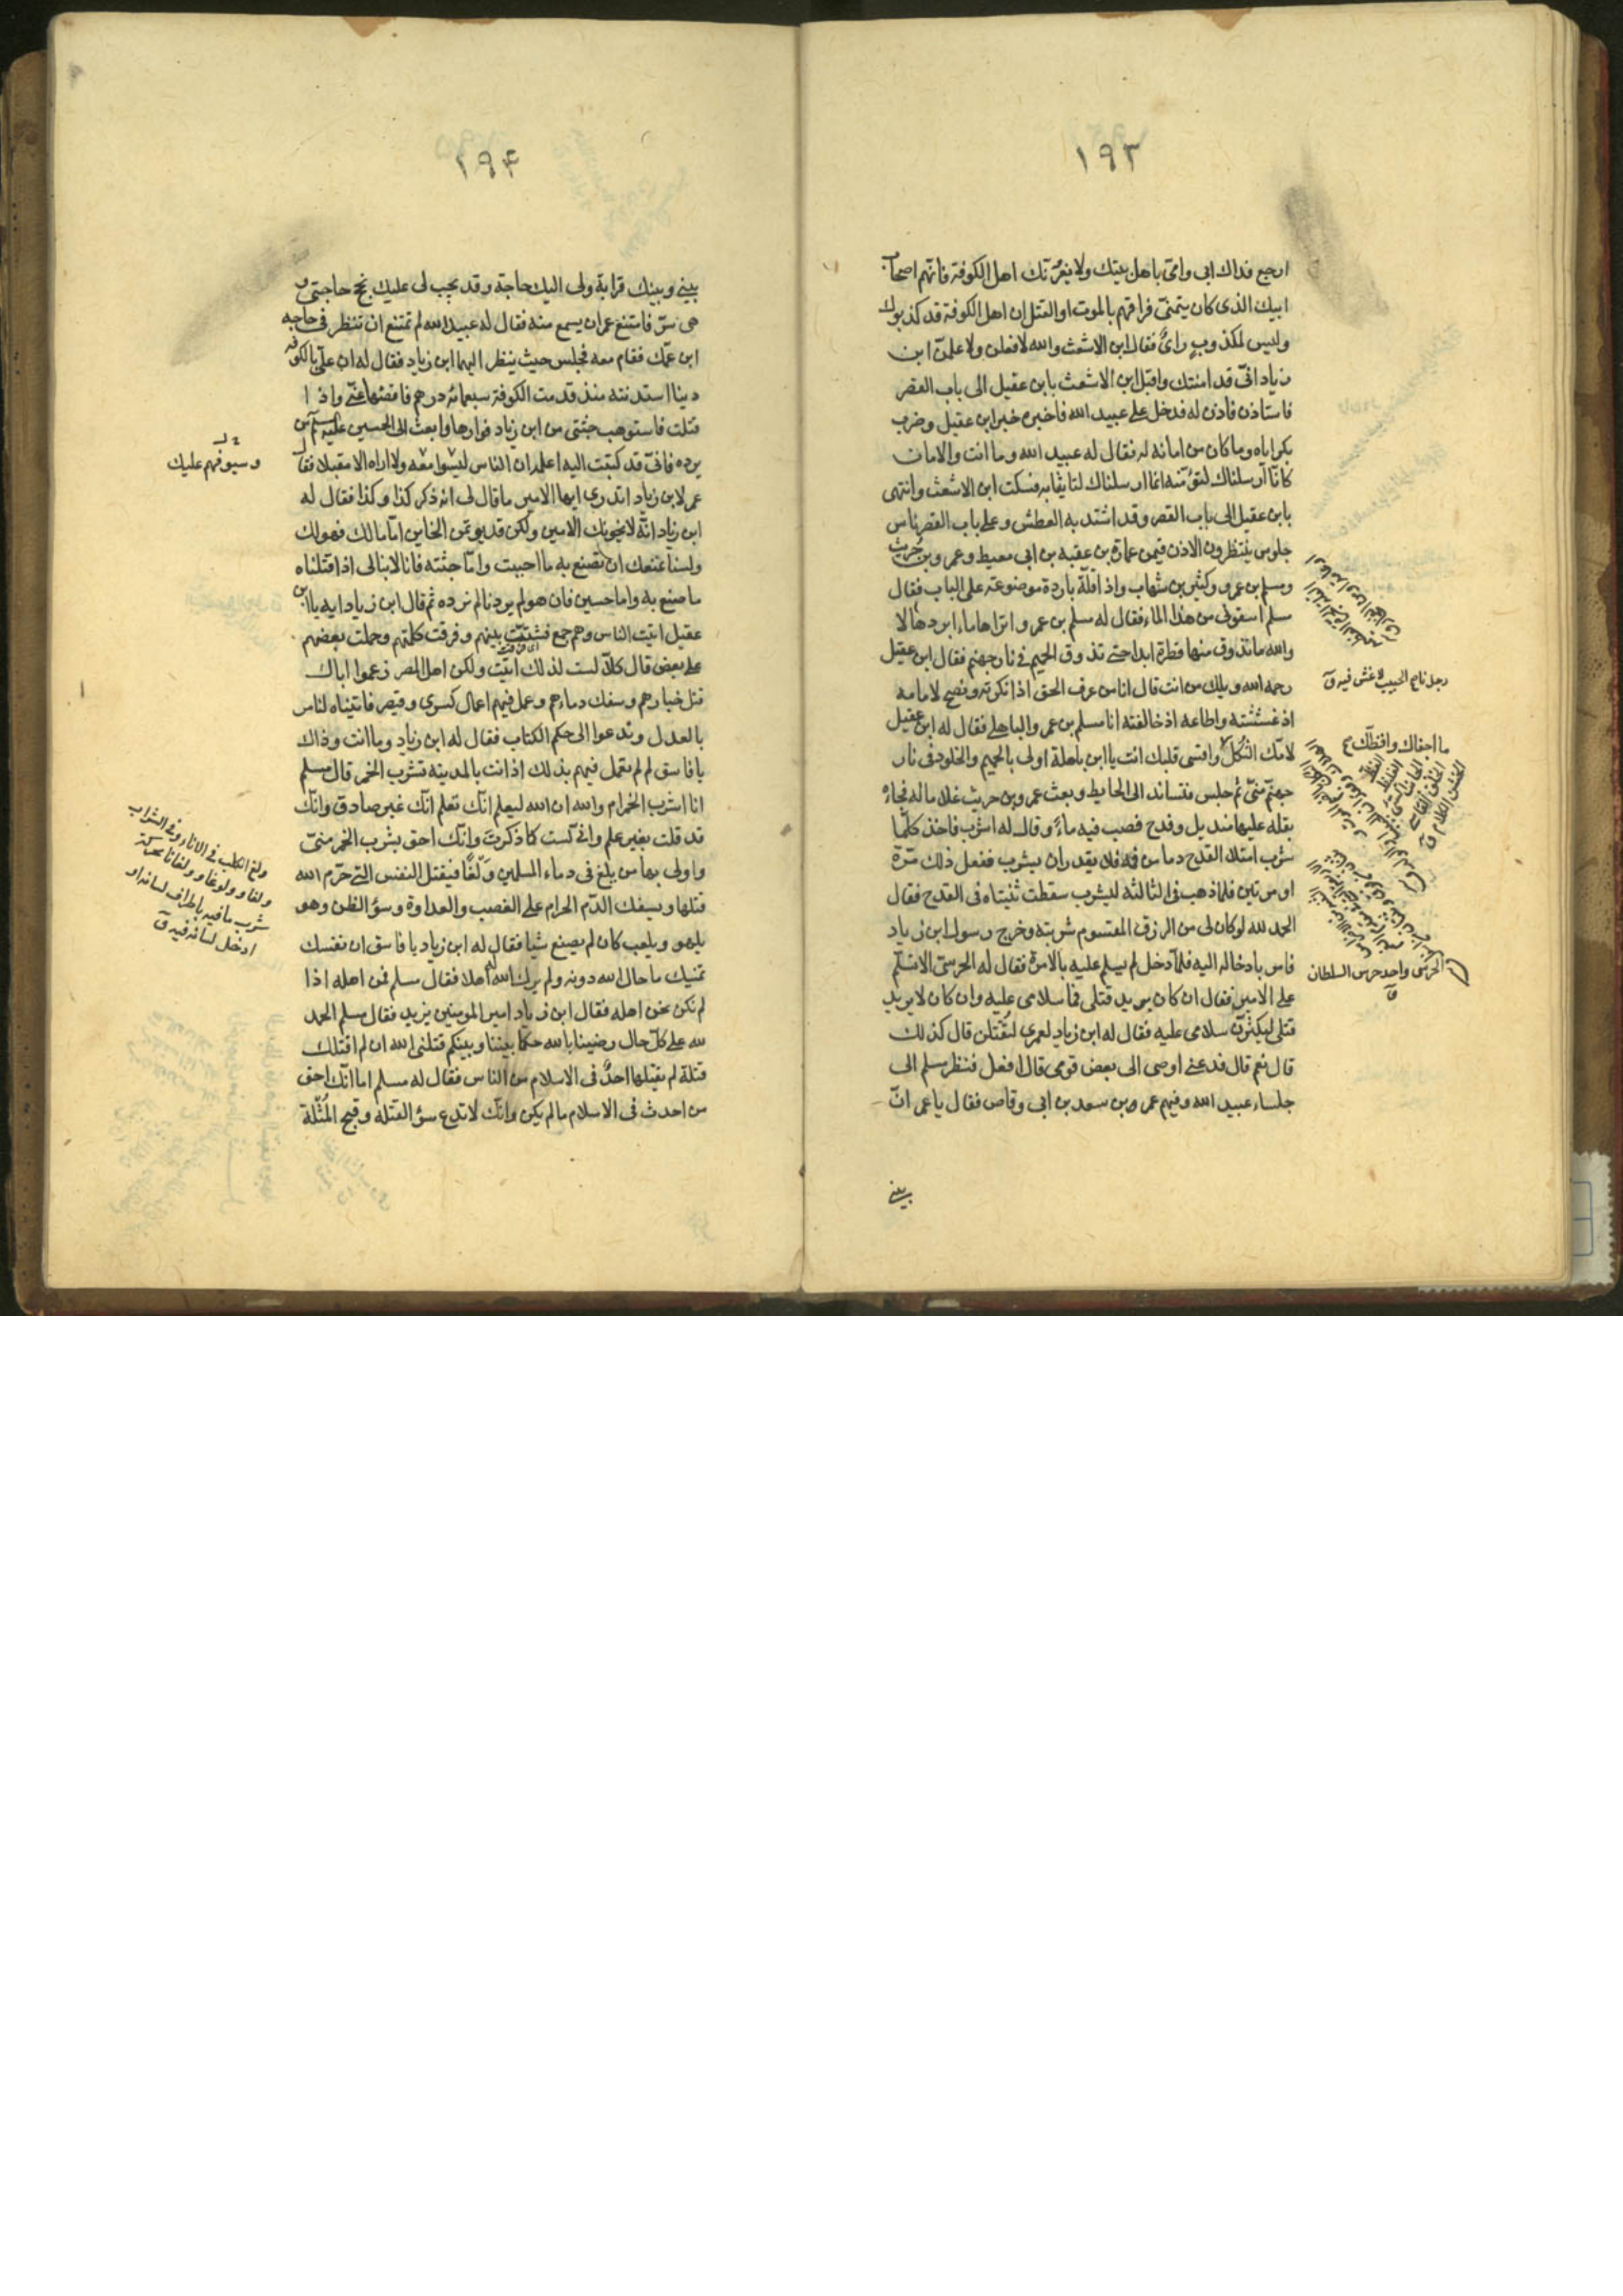 ١٩٣
ارجع فداك ابى وامى باهل بيتك ولا يغرّنّك اهل الكوفة فانّهم اصحاب
ابيك الذى كان يتمنّى فراقهم بالموت او القتل ان اهل الكوفة قد كذبوك
وليس لمكذوب رأىٌ فقال ابن الاشعث والله لافعلن ولاعلمنّ ابن
زياد انّى قد امنتك واقبل ابن الاشعث بابن عقيل الى باب القصر
فاستاذن فاذن له فدخل على عبيد الله فاخبره خبر ابن عقيل وضرب
بكر اياه وما كان من امانه له فقال له عبيد الله وما انت والامان
كانّا ارسلناك لتؤمّنه انما ارسلناك لتاتينا به فسكت ابن الاشعث وانتهى
بابن عقيل الى باب القصر وقد اشتد به العطش وعلى باب القصر ناس
جلوس ينتظرون الاذن فيهم عمارة بن عقبة بن ابى معيط وعمرو بن حُريث
ومسلم بن عمرو وكثير بن شهاب واذا قلّة باردة موضوعة على الباب فقال
مسلم اسقونى من هذا الماء فقال له مسلم بن عمرو اتراها ما ابردها لا
والله ما تذوق منها قطرة ابدا حتى تذوق الحميم فى نار جهنم فقال ابن عقيل
رحمه الله ويلك من انت قال انا من عرف الحق اذ انكرته ونصح لامامه
اذ غششته واطاعه اذ خالفته انا مسلم بن عمرو الباهلى فقال له ابن عقيل
لامّك الثُكل واقسى قلبك انت يا ابن باهلة اولى بالحميم والخلود فى نار
جهنّم منّى ثم جلس فتساند الى الحايط وبعث عمرو بن حريث غلاما له فجاءه
بقلة عليها منديل وقدح فصب فيه ماءً وقال له اشرب فاخذ كلّما
شرب امتلا القدح دما من فيه فلا يقدر ان يشرب ففعل ذلك مرّة
او مرتين فلما ذهب فى الثالثة ليشرب سقطت ثنيتاه فى القدح فقال
الحمد لله لو كان لى من الرزق المقسوم شربته وخرج رسول ابن زياد
فامر بادخاله اليه فلمّا دخل لم يسلم عليه بالامرة فقال له الحرسىّ الا تسلّم
على الامير فقال ان كان يريد قتلى فما سلامى عليه وان كان لا يريد
قتلى ليكثرنّ سلامى عليه فقال له ابن زياد لعمرى لتُقتلن قال كذلك
قال نعم قال فدعنى اوصى الى بعض قومى قال افعل فنظر مسلم الى
جلساء عبيد الله وفيهم عمر بن سعد بن ابى وقاص فقال يا عمر انّ
بينى
رجل ناصح الجيب لا غش فيه ق
ما اجفاك وافظّك ع
الحرسى واحد حرس السلطان
ق
١٩۴
بينى وبينك قرابة ولى اليك حاجة وقد يجب لى عليك نجح حاجتى و
هى سرّ فامتنع عمر ان يسمع منه فقال له عبيد الله لم تمتنع ان تنظر فى حاجة
ابن عمّك فقام معه فجلس حيث ينظر اليهما ابن زياد فقال له ان علىّ بالكوفة
دينا استدنته منذ قدمت الكوفة سبعمائة درهم فاقضها عنّى واذا
قتلت فاستوهب جثتى من ابن زياد فوارها وابعث الى الحسين عليه السلم من
يرده فانّى قد كتبت اليه اعلمه ان الناس ليسوا معه ولا اراه الا مقبلا فقال
عمر لابن زياد اتدرى ايها الامير ما قال لى انه ذكر كذا وكذا فقال له
ابن زياد انّه لا يخونك الامين ولكن قد يوتمن الخاين امّا مالك فهو لك
ولسنا نمنعك ان تصنع به ما احببت وامّا جثته فانا لا نبالى اذا قتلناه
ما صنع به واما حسين فان هو لم يردنا لم نرده ثم قال ابن زياد ايه يا ابن
عقيل اتيت الناس وهم جمع فشتّتّ بينهم وفرقت كلمتهم وحملت بعضهم
على بعض قال كلّا لست لذلك اتيت ولكن اهل المصر زعموا ان اباك
قتل خيارهم وسفك دماءهم وعمل فيهم اعمال كسرى وقيصر فاتيناه لنامر
بالعدل وندعوا الى حكم الكتاب فقال له ابن زياد وما انت وذاك
يا فاسق لم لم تعمل فيهم بذلك اذ انت بالمدينة تشرب الخمر قال مسلم
انا اشرب الخمر ام والله ان الله ليعلم انّك تعلم انّك غير صادق وانّك
قد قلت بغير علم وانى لست كما ذكرتَ وانّك احق بشرب الخمر منّى
واولى بها من يلغ فى دماء المسلمين وَلْغًا فيقتل النفس التى حرّم الله
قتلها ويسفك الدّم الحرام على الغصب والعداوة وسؤ الظن وهو
يلهو ويلعب كان لم يصنع شيا فقال له ابن زياد يا فاسق ان نفسك
تمنيك ما حال الله دونه ولم يرك الله له اهلا فقال مسلم فمن اهله اذا
لم نكن نحن اهله فقال ابن زياد امير المومنين يزيد فقال مسلم الحمد
لله على كلّ حال رضينا بالله حكما بيننا وبينكم فقال له ابن قتلنى الله ان لم اقتلك
قتلة لم يقتلها احدٌ فى الاسلام من الناس فقال له مسلم اما انّك احق
من احدث فى الاسلام ما لم يكن وانّك لا تدع سؤ القتلة وقبح المُثْلة
وسيوفهم عليك
ولغ الكلب فى الاناء وفى الشراب
ولغا وولوغا وولغانا محركة
شرب ما فيه باطراف لسانه او
ادخل لسانه فيه ق